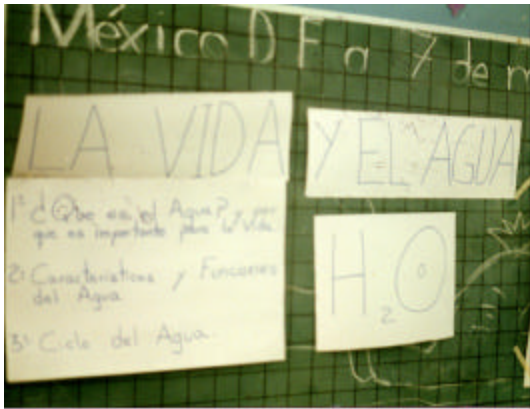 México D F a 7 de m
LA VIDA Y EL AGUA
1º ¿Que es el Agua? y por
que es importante para la Vida
2º Características y Funciones
del Agua
3º Ciclo del Agua.
H2O